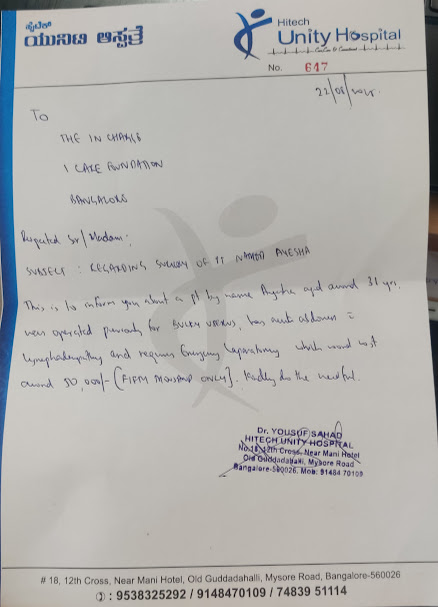 ಹೈಟೆಕ್
ಯುನಿಟಿ ಆಸ್ಪತ್ರೆ
Hitech
Unity Hospital
No. 617
22/08/
To
THE IN CHARGE
I CARE FOUNDATION
BANGALORE
Respected Sir/Madam;
SUBJECT : REGARDING SURGERY OF PT NAMED AYESHA
This is to inform you about a pt by name Ayesha aged around 31 yrs.
was operated previously for BULKY UTERUS, has acute abdomen =
lymphadenopathy and requires Emergency laparotomy which would cost
around 50,000/- [FIFTY THOUSAND ONLY]. Kindly do the needful.
Dr. YOUSUF SAHAD
HITECH UNITY HOSPITAL
No.18, 12th Cross, Near Mani Hotel
Old Guddadahalli, Mysore Road
Bangalore-560026. Mob: 91484 70109
# 18, 12th Cross, Near Mani Hotel, Old Guddadahalli, Mysore Road, Bangalore-560026
✆ : 9538325292 / 9148470109 / 74839 51114